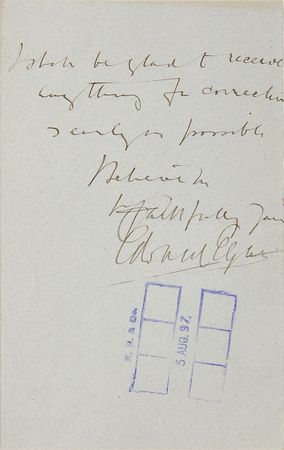 I shall be glad to receive
anything for correction
as early as possible
Believe me
Yrs faithfully
Edward Elgar
3 AUG. 97